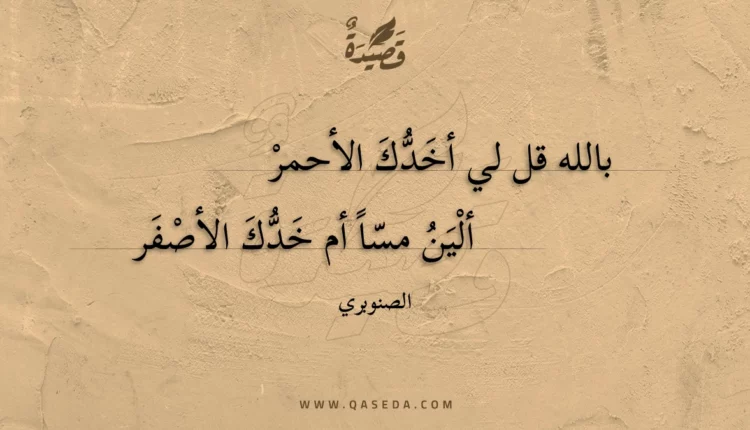 قَصِيْدَةٌ
بالله قل لي أخَدُّكَ الأحمرْ
ألْيَنُ مسّاً أم خَدُّكَ الأصْفَر
الصنوبري
WWW.QASEDA.COM